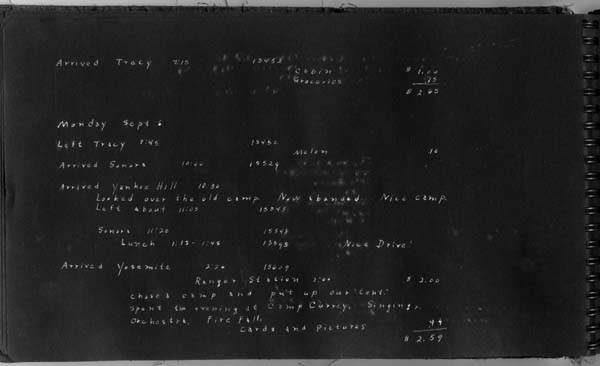 Arrived Tracy 7:15 15453
Cabin $ 1.00
Groceries .95
$ 2.65
Monday Sept 6
Left Tracy 7:45 15452
Melon .10
Arrived Sonora 10:00 15529
Arrived Yankee Hill 10:30
Looked over the old camp Now abanded Nice camp
Left about 11:05 15545
Sonora 11:20 15548
Lunch 1:15 - 1:45 15598 Nice Drive!
Arrived Yosemite 2:30 15609
Ranger Station 3:00 $ 2.00
chose a camp and put up our "tent"
spent the evening at Camp Currey. Singing,
Orchestra, Fire Fall.
Cards and Pictures .49
$ 2.59